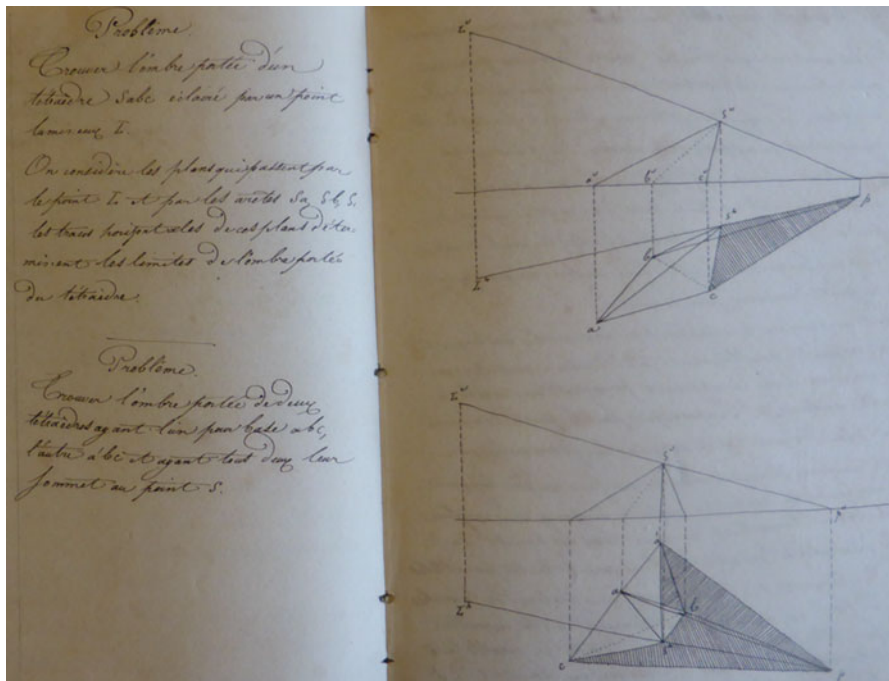 Problème.
Trouver l'ombre portée d'un
tétraèdre Sabc éclairé par un point
lumineux L.
On considère les plans qui passent par
le point L et par les arêtes Sa, Sb, Sc
les traces horizontales de ces plans déter-
minent les limites de l'ombre portée
du tétraèdre.
Problème.
Trouver l'ombre portée de deux
tétraèdres ayant l'un pour base abc,
l'autre a'bc et ayant tout deux leur
sommet au point S.
L^v
s^v
a^v
b^v
c^v
s^h
p
b
L^h
c
a
L^v
s^v
p^v
a
b
L^h
s^h
c
p